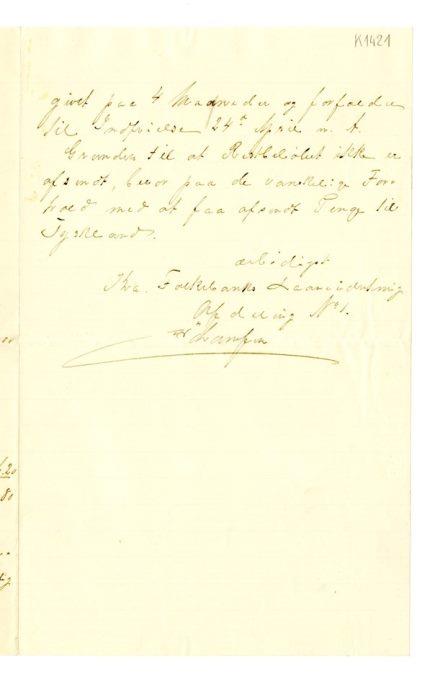 K1421
givet paa 4 Maaneder og forfalder
til Indfrielse 24de April n. A.
Grunden til at Restbeløbet ikke er
afsendt, beror paa de vanskelige For-
hold med at faa afsendt Penge til
Tyskland.
ærbødigst
Folkebanks Laaneindretning
Afdeling No 1.
Hansen
20
80